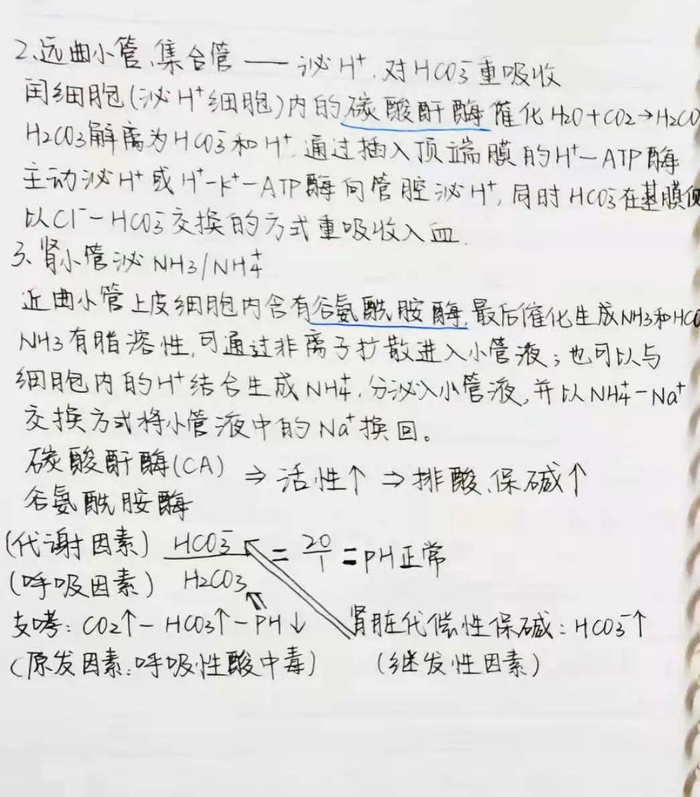 2、远曲小管、集合管 —— 泌H⁺、对HCO₃⁻重吸收
闰细胞(泌H⁺细胞)内的碳酸酐酶催化H₂O+CO₂→H₂CO
H₂CO₃解离为HCO₃⁻和H⁺,通过插入顶端膜的H⁺-ATP酶
主动泌H⁺或H⁺-K⁺-ATP酶向管腔泌H⁺,同时HCO₃⁻在基膜侧
以Cl⁻-HCO₃⁻交换的方式重吸收入血.
3、肾小管泌NH₃/NH₄⁺
近曲小管上皮细胞内含有谷氨酰胺酶,最后催化生成NH₃和HCO
NH₃有脂溶性,可通过非离子扩散进入小管液;也可以与
细胞内的H⁺结合生成NH₄⁺,分泌入小管液,并以NH₄⁺-Na⁺
交换方式将小管液中的Na⁺换回。
碳酸酐酶(CA) ⇒ 活性↑ ⇒ 排酸、保碱↑
谷氨酰胺酶
(代谢因素) HCO₃⁻ = 20/1 = PH正常
(呼吸因素) H₂CO₃
支哮:CO₂↑-HCO₃⁻↑-PH↓ 肾脏代偿性保碱:HCO₃⁻↑
(原发因素:呼吸性酸中毒) (继发性因素)